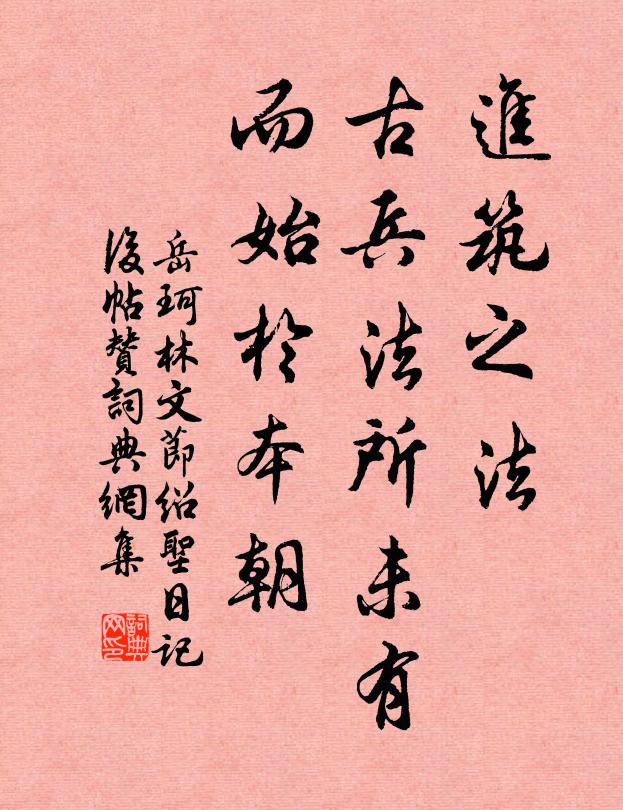 進筑之法
古兵法所未有
而始於本朝
岳珂林文節紹聖日記
後帖贊詞典網集
詞典網印